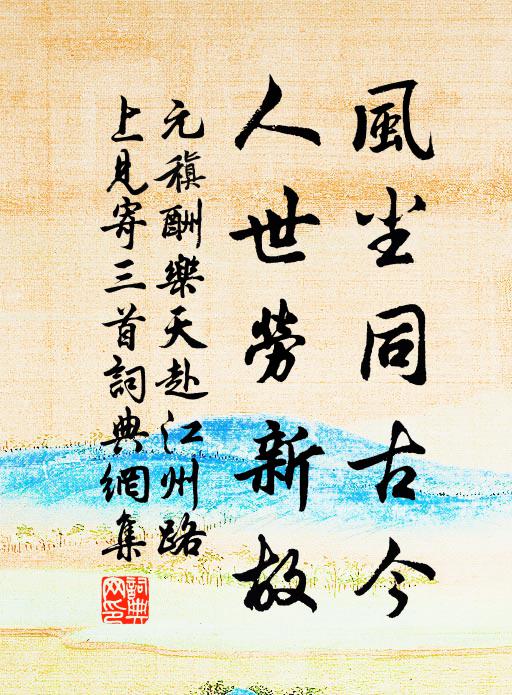 風尘同古今
人世勞新故
元稹酬樂天赴江州路
上見寄三首詞典網集